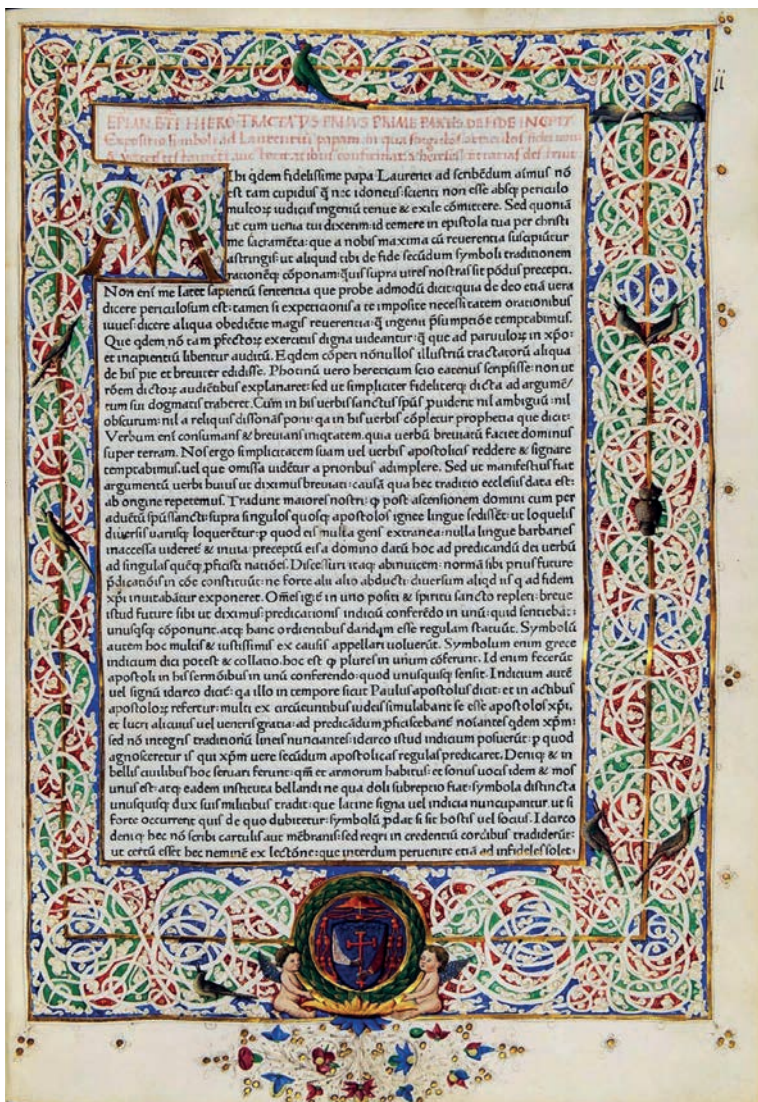 ii
EPLAR. BTI HIERO. TRACTATVS PRIMVS PRIME PARTIS DE FIDE INCIPIT
Expositio simboli ad Laurentium papam. in qua singulos articulos fidei
Mihi qdem fidelissime papa Laurenti ad scribēdum aīmus nō
est tam cupidus q̄ nec idoneus: scienti non esse absq; periculo
multoꝝ iudiciis ingeniū tenue & exile cōmittere. Sed quoniā
ut cum uenia tui dixerim: id temere in epistola tua per christi
me sacramēta: que a nobis maxima cū reuerentia suscipiūtur
astringis: ut aliquid tibi de fide secūdum symboli traditionem
rationēq; cōponam: q̄uis supra uires nostras sit pōdus precepti.
Non eni me latet sapientū sententia que probe admodū dicit: quia de deo etiā uera
dicere periculosum est: tamen si expeticionis a te imposite necessitatem orationibus
iuues: dicere aliqua obediētie magis reuerentia: q̄ ingenii p̄sumptiōe temptabimus.
Que qdem nō tam pfectoꝝ exercitiis digna uideantur: q̄ que ad paruuloꝝ in xp̄o:
et incipientiū libentur auditū. Eqdem cōperi nōnullos illustriū tractatorū aliqua
de his pie et breuiter edidisse. Photinū uero hereticum scio eatenus scripsisse: non ut
rōem dictoꝝ audiētibus explanaret: sed ut simpliciter fideliterq; dicta ad argumē/
tum sui dogmatis traheret. Cum in his uerbis sanctus spūs puiderit nil ambiguū: nil
obscurum: nil a reliquis dissonās poni: qa in his uerbis cōpletur prophetia que dicit:
Verbum eni consumans & breuians iniqtatem. quia uerbū breuiatū faciet dominus
super terram. Nos ergo simplicitatem suam uel uerbis apostolicis reddere & signare
temptabimus. uel que omissa uidētur a prioribus adimplere. Sed ut manifestius fiat
argumentū uerbi huius ut diximus breuiati: causā qua hec traditio ecclesiis data est:
ab origine repetemus. Tradunt maiores nostri: ꝙ post ascensionem domini cum per
aduētū spūs sancti: supra singulos quosq; apostolos ignee lingue sedissēt: ut loquelis
diuersis uariisq; loquerētur: p quod eis multa gens extranea: nulla lingue barbaries
inaccessa uideretur & inuia: preceptū eis a domino datū hoc ad predicandū dei uerbū
ad singulas quēq; pficisci natiōes. Discessuri itaq; abinuicem: normā sibi prius future
p̄dicatiōis in cōe constituūt: ne forte alii alio abducti: diuersum aliqd iis q ad fidem
xp̄i inuitabātur exponeret. Oēs igit̄ in uno positi & spiritu sancto repleti: breue
istud future sibi ut diximus: predicationis indiciū conferēdo in unū: quid sentiebāt:
unusqsq; cōponunt. atq; hanc ordientibus dandam esse regulam statuūt. Symbolū
autem hoc multis & iustissimis ex causis appellari uoluerūt. Symbolum enim grece
indicium dici potest & collatio. hoc est ꝙ plures in unum cōferunt. Id enim fecerūt
apostoli in his sermōibus in unū conferendo: quod unusquisq; sensit. Indicium autē
uel signū idarco dicit̄: qa illo in tempore sicut Paulus apostolus dicit: et in actibus
apostoloꝝ refertur: multi ex circūeuntibus iudeis simulabant se esse apostolos xp̄i.
et lucri alicuius uel uentris gratia: ad predicādum pficiscebanē noiantes qdem xp̄m:
sed nō integris traditionū lineis nunciantes: idarco istud indicium posuerūt: p quod
agnosceretur is qui xp̄m uere secūdum apostolicas regulas predicaret. Deniq; & in
bellis ciuilibus hoc seruari ferunt: qm̄ et armorum habitus: et sonus uocis idem & mos
unus est: atq; eadem instituta bellandi: ne qua doli subreptio fiat: symbola distincta
unusquisq; dux suis militibus tradit: que latine signa uel indicia nuncupantur. ut si
forte occurrerit quis de quo dubitetur: symbolū pdat si sit hostis uel socius. Idarco
deniq; hec nō scribi cartulis aut mēbranis: sed reqri in credentiū cordibus tradiderūt:
ut certū esset hec neminē ex lectōne: que interdum peruenire etiā ad infideles solet: